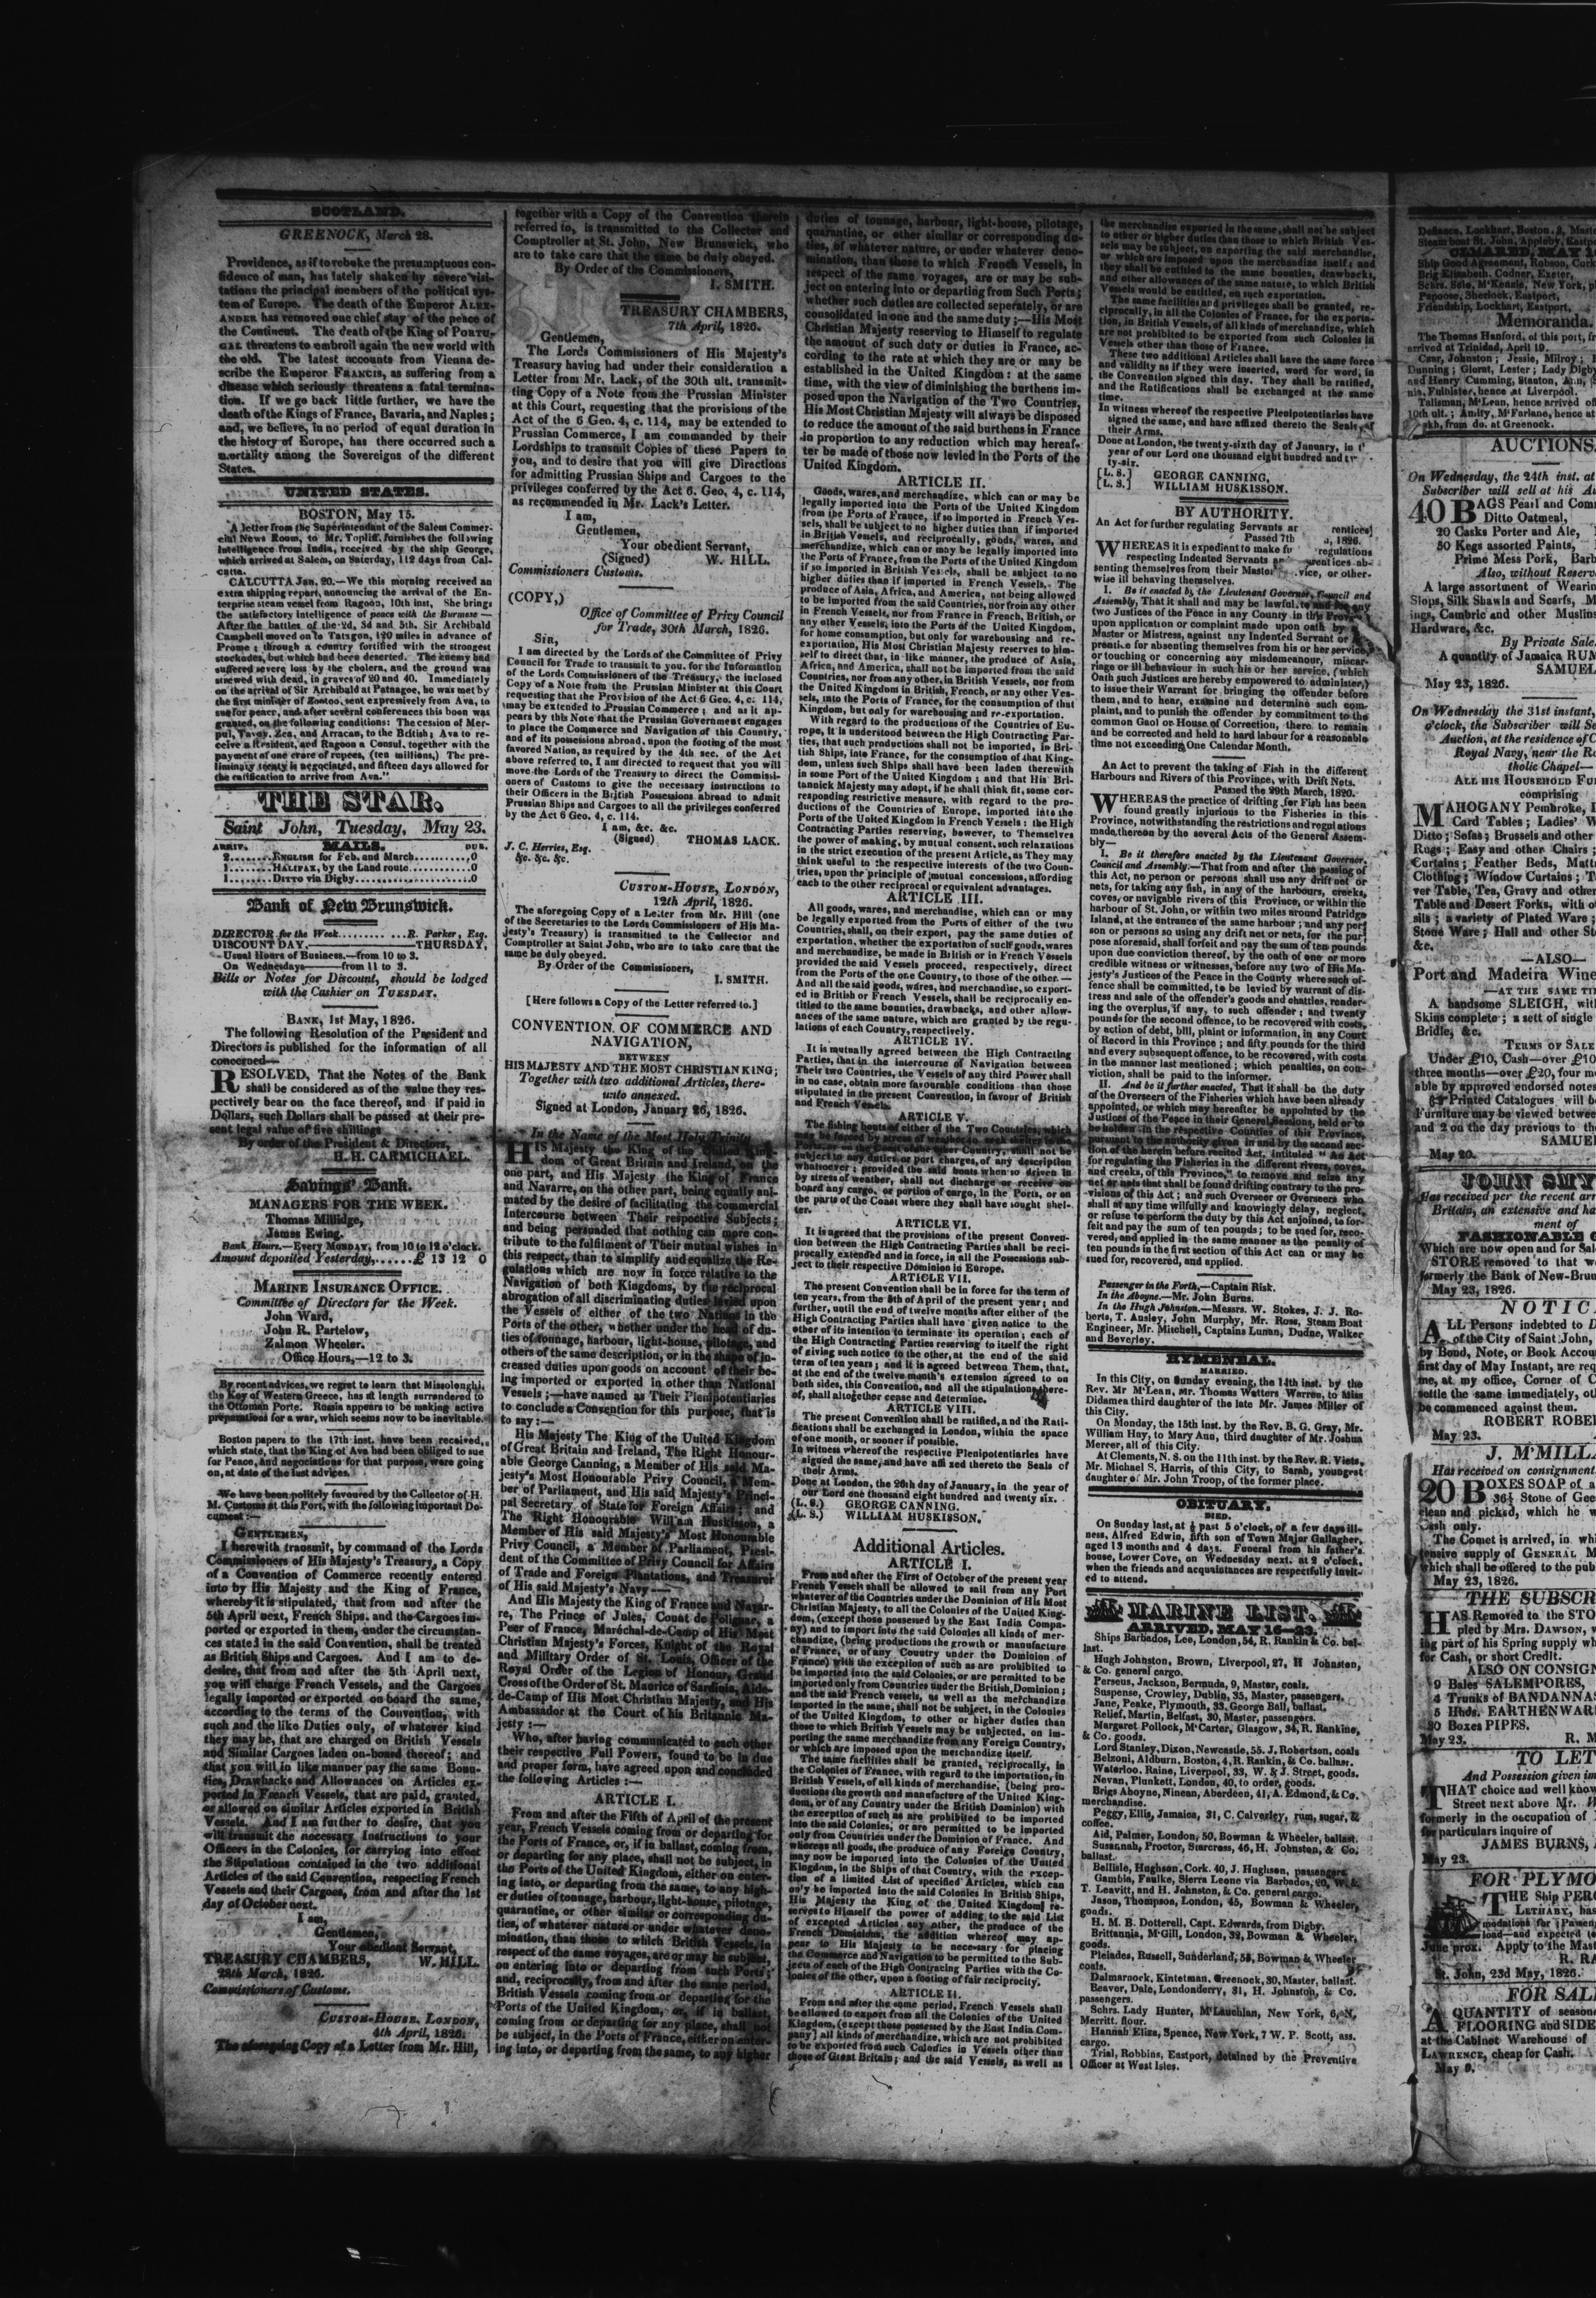 SCOTLAND.
GREENOCK, March 28.
Providence, as if to rebuke the presumptuous con-
fidence of man, has lately shaken by severe visi-
tations the principal members of the political sys-
tem of Europe. The death of the Emperor ALEX-
ANDER has removed one chief stay of the peace of
the Continent. The death of the King of PORTU-
GAL threatens to embroil again the new world with
the old. The latest accounts from Vienna de-
scribe the Emperor FRANCIS, as suffering from a
disease which seriously threatens a fatal termina-
tion. If we go back little further, we have the
death of the Kings of France, Bavaria, and Naples;
and, we believe, in no period of equal duration in
the history of Europe, has there occurred such a
mortality among the Sovereigns of the different
States.
UNITED STATES.
BOSTON, May 15.
A letter from the Superintendant of the Salem Commer-
cial News Room, to Mr. Topliff, furnishes the following
intelligence from India, received by the ship George,
which arrived at Salem, on Saturday, 112 days from Cal-
cutta.
CALCUTTA Jan. 20.—We this morning received an
extra shipping report, announcing the arrival of the En-
terprise steam vessel from Ragoon, 10th inst. She brings
the satisfactory intelligence of peace with the Burmese—
After the battles of the 2d, 3d and 5th, Sir Archibald
Campbell moved on to Tatagon, 120 miles in advance of
Prome; through a country fortified with the strongest
stockades, but which had been deserted. The enemy had
suffered severe loss by the cholera, and the ground was
strewed with dead, in graves of 20 and 40. Immediately
on the arrival of Sir Archibald at Patnagoe, he was met by
the first minister of Zontoo, sent expressively from Ava, to
sue for peace, and after several conferences this boon was
granted, on the following conditions: The cession of Mer-
gui, Tavoy, Zea, and Arracan, to the British; Ava to re-
ceive a Resident, and Ragoon a Consul, together with the
payment of one crore of rupees, (ten millions.) The pre-
liminary treaty is negociated, and fifteen days allowed for
the ratification to arrive from Ava."
THE STAR.
Saint John, Tuesday, May 23.
ARRIV. MAILS. DUE.
2........ENGLISH for Feb. and March..........0
1........HALIFAX, by the Land route..........0
1........DITTO via Digby..........0
Bank of New Brunswick.
DIRECTOR for the Week..........R. Parker, Esq.
DISCOUNT DAY,——THURSDAY,
Usual Hours of Business.—from 10 to 3.
On Wednesdays——from 11 to 3.
Bills or Notes for Discount, should be lodged
with the Cashier on TUESDAY.
BANK, 1st May, 1826.
The following Resolution of the President and
Directors is published for the information of all
concerned—
RESOLVED, That the Notes of the Bank
shall be considered as of the value they res-
pectively bear on the face thereof, and if paid in
Dollars, such Dollars shall be passed at their pre-
sent legal value of five shillings
By order of the President & Directors,
H. H. CARMICHAEL.
Savings' Bank.
MANAGERS FOR THE WEEK.
Thomas Millidge,
James Ewing.
Bank Hours.—Every MONDAY, from 10 to 12 o'clock.
Amount deposited Yesterday,......£ 13 12 0
MARINE INSURANCE OFFICE.
Committee of Directors for the Week.
John Ward,
John R. Partelow,
Zalmon Wheeler.
Office Hours,—12 to 3.
By recent advices, we regret to learn that Missolonghi,
the Key of Western Greece, has at length surrendered to
the Ottoman Porte. Russia appears to be making active
preparations for a war, which seems now to be inevitable.
Boston papers to the 17th inst. have been received,
which state, that the King of Ava had been obliged to sue
for Peace, and negociations for that purpose, were going
on, at date of the last advices.
We have been politely favoured by the Collector of H.
M. Customs at this Port, with the following important Do-
cument:—
GENTLEMEN,
I herewith transmit, by command of the Lords
Commissioners of His Majesty's Treasury, a Copy
of a Convention of Commerce recently entered
into by His Majesty and the King of France,
whereby it is stipulated, that from and after the
5th April next, French Ships, and the Cargoes im-
ported or exported in them, under the circumstan-
ces stated in the said Convention, shall be treated
as British Ships and Cargoes. And I am to de-
desire, that from and after the 5th April next,
you will charge French Vessels, and the Cargoes
legally imported or exported on board the same,
according to the terms of the Convention, with
such and the like Duties only, of whatever kind
they may be, that are charged on British Vessels
and Similar Cargoes laden on-board thereof; and
that you will in like manner pay the same Boun-
ties, Drawbacks and Allowances on Articles ex-
ported in French Vessels, that are paid, granted,
or allowed on similar Articles exported in British
Vessels. And I am further to desire, that you
will transmit the necessary Instructions to your
Officers in the Colonies, for carrying into effect
the Stipulations contained in the two additional
Articles of the said Convention, respecting French
Vessels and their Cargoes, from and after the 1st
day of October next.
I am,
Gentlemen,
Your obedient Servant,
TREASURY CHAMBERS, W. HILL.
28th March, 1826.
Commissioners of Customs.
CUSTOM-HOUSE, LONDON,
4th April, 1826.
The aforegoing Copy of a Letter from Mr. Hill,
together with a Copy of the Convention therein
referred to, is transmitted to the Collector and
Comptroller at St. John, New Brunswick, who
are to take care that the same be duly obeyed.
By Order of the Commissioners,
I. SMITH.
TREASURY CHAMBERS,
7th April, 1826.
Gentlemen,
The Lords Commissioners of His Majesty's
Treasury having had under their consideration a
Letter from Mr. Lack, of the 30th ult. transmit-
ting Copy of a Note from the Prussian Minister
at this Court, requesting that the provisions of the
Act of the 6 Geo. 4, c. 114, may be extended to
Prussian Commerce, I am commanded by their
Lordships to transmit Copies of these Papers to
you, and to desire that you will give Directions
for admitting Prussian Ships and Cargoes to the
privileges conferred by the Act 6. Geo, 4, c. 114,
as recommended in Mr. Lack's Letter.
I am,
Gentlemen,
Your obedient Servant,
(Signed) W. HILL.
Commissioners Customs.
(COPY,)
Office of Committee of Privy Council
for Trade, 30th March, 1826.
Sir,
I am directed by the Lords of the Committee of Privy
Council for Trade to transmit to you, for the Information
of the Lords Commissioners of the Treasury, the inclosed
Copy of a Note from the Prussian Minister at this Court
requesting that the Provision of the Act 6 Geo. 4, c. 114,
may be extended to Prussian Commerce; and as it ap-
pears by this Note that the Prussian Government engages
to place the Commerce and Navigation of this Country,
and of its possessions abroad, upon the footing of the most
favored Nation, as required by the 4th sec. of the Act
above referred to, I am directed to request that you will
move the Lords of the Treasury to direct the Commissi-
oners of Customs to give the necessary instructions to
their Officers in the British Possessions abroad to admit
Prussian Ships and Cargoes to all the privileges conferred
by the Act 6 Geo. 4, c. 114.
I am, &c. &c.
(Signed) THOMAS LACK.
J. C. Herries, Esq.
&c. &c. &c.
CUSTOM-HOUSE, LONDON,
12th April, 1826.
The aforegoing Copy of a Letter from Mr. Hill (one
of the Secretaries to the Lords Commissioners of His Ma-
jesty's Treasury) is transmitted to the Collector and
Comptroller at Saint John, who are to take care that the
same be duly obeyed.
By Order of the Commissioners,
I. SMITH.
[Here follows a Copy of the Letter referred to.]
CONVENTION OF COMMERCE AND
NAVIGATION,
BETWEEN
HIS MAJESTY AND THE MOST CHRISTIAN KING;
Together with two additional Articles, there-
unto annexed.
Signed at London, January 26, 1826.
In the Name of the Most Holy Trinity.
HIS Majesty the King of the United King-
dom of Great Britain and Ireland, on the
one part, and His Majesty the King of France
and Navarre, on the other part, being equally ani-
mated by the desire of facilitating the commercial
Intercourse between Their respective Subjects;
and being persuaded that nothing can more con-
tribute to the fulfilment of Their mutual wishes in
this respect, than to simplify and equalize the Re-
gulations which are now in force relative to the
Navigation of both Kingdoms, by the reciprocal
abrogation of all discriminating duties levied upon
the Vessels of either of the two Nations in the
Ports of the other, whether under the head of du-
ties of tonnage, harbour, light-house, pilotage, and
others of the same description, or in the shape of in-
creased duties upon goods on account of their be-
ing imported or exported in other than National
Vessels;—have named as Their Plenipotentiaries
to conclude a Convention for this purpose, that is
to say:—
His Majesty The King of the United Kingdom
of Great Britain and Ireland, The Right Honour-
able George Canning, a Member of His said Ma-
jesty's Most Honourable Privy Council, a Mem-
ber of Parliament, and His said Majesty's Princi-
pal Secretary of State for Foreign Affairs; and
The Right Honourable William Huskisson, a
Member of His said Majesty's Most Honourable
Privy Council, a Member of Parliament, Presi-
dent of the Committee of Privy Council for Affairs
of Trade and Foreign Plantations, and Treasurer
of His said Majesty's Navy—
And His Majesty the King of France and Navar-
re, The Prince of Jules, Count de Polignac, a
Peer of France, Maréchal-de-Camp of His Most
Christian Majesty's Forces, Knight of the Royal
and Military Order of St. Louis, Officer of the
Royal Order of the Legion of Honour, Grand
Cross of the Order of St. Maurice of Sardinia, Aide-
de-Camp of His Most Christian Majesty, and His
Ambassador at the Court of his Britannic Ma-
jesty:—
Who, after having communicated to each other
their respective Full Powers, found to be in due
and proper form, have agreed upon and concluded
the following Articles:—
ARTICLE I.
From and after the Fifth of April of the present
year, French Vessels coming from or departing for
the Ports of France, or, if in ballast, coming from,
or departing for any place, shall not be subject, in
the Ports of the United Kingdom, either on enter-
ing into, or departing from the same, to any high-
er duties of tonnage, harbour, light-house, pilotage,
quarantine, or other similar or corresponding du-
ties, of whatever nature or under whatever deno-
mination, than those to which British Vessels, in
respect of the same voyages, are or may be subject,
on entering into or departing from such Ports;
and, reciprocally, from and after the same period,
British Vessels coming from or departing for the
Ports of the United Kingdom, or, if in ballast,
coming from or departing for any place, shall not
be subject, in the Ports of France, either on enter-
ing into, or departing from the same, to any higher
duties of tonnage, harbour, light-house, pilotage,
quarantine, or other similar or corresponding du-
ties, of whatever nature, or under whatever deno-
mination, than those to which French Vessels, in
respect of the same voyages, are or may be sub-
ject on entering into or departing from Such Ports;
whether such duties are collected seperately, or are
consolidated in one and the same duty;—His Most
Christian Majesty reserving to Himself to regulate
the amount of such duty or duties in France, ac-
cording to the rate at which they are or may be
established in the United Kingdom: at the same
time, with the view of diminishing the burthens im-
posed upon the Navigation of the Two Countries,
His Most Christian Majesty will always be disposed
to reduce the amount of the said burthens in France
in proportion to any reduction which may hereaf-
ter be made of those now levied in the Ports of the
United Kingdom.
ARTICLE II.
Goods, wares, and merchandize, which can or may be
legally imported into the Ports of the United Kingdom
from the Ports of France, if so imported in French Ves-
sels, shall be subject to no higher duties than if imported
in British Vessels, and reciprocally, goods, wares, and
merchandize, which can or may be legally imported into
the Ports of France, from the Ports of the United Kingdom
if so imported in British Vessels, shall be subject to no
higher duties than if imported in French Vessels. The
produce of Asia, Africa, and America, not being allowed
to be imported from the said Countries, nor from any other
in French Vessels, nor from France in French, British, or
any other Vessels, into the Ports of the United Kingdom,
for home consumption, but only for warehousing and re-
exportation, His Most Christian Majesty reserves to him-
self to direct that, in like manner, the produce of Asia,
Africa, and America, shall not be imported from the said
Countries, nor from any other, in British Vessels, nor from
the United Kingdom in British, French, or any other Ves-
sels, into the Ports of France, for the consumption of that
Kingdom, but only for warehousing and re-exportation.
With regard to the productions of the Countries of Eu-
rope, it is understood between the High Contracting Par-
ties, that such productions shall not be imported, in Bri-
tish Ships, into France, for the consumption of that King-
dom, unless such Ships shall have been laden therewith
in some Port of the United Kingdom; and that His Bri-
tannick Majesty may adopt, if he shall think fit, some cor-
responding restrictive measure, with regard to the pro-
ductions of the Countries of Europe, imported into the
Ports of the United Kingdom in French Vessels: the High
Contracting Parties reserving, however, to Themselves
the power of making, by mutual consent, such relaxations
in the strict execution of the present Article, as They may
think useful to the respective interests of the two Coun-
tries, upon the principle of mutual concessions, affording
each to the other reciprocal or equivalent advantages.
ARTICLE III.
All goods, wares, and merchandize, which can or may
be legally exported from the Ports of either of the two
Countries, shall, on their export, pay the same duties of
exportation, whether the exportation of such goods, wares
and merchandize, be made in British or in French Vessels
provided the said Vessels proceed, respectively, direct
from the Ports of the one Country, to those of the other.—
And all the said goods, wares, and merchandise, so export-
ed in British or French Vessels, shall be reciprocally en-
titled to the same bounties, drawbacks, and other allow-
ances of the same nature, which are granted by the regu-
lations of each Country, respectively.
ARTICLE IV.
It is mutually agreed between the High Contracting
Parties, that in the intercourse of Navigation between
Their two Countries, the Vessels of any third Power shall
in no case, obtain more favourable conditions than those
stipulated in the present Convention, in favour of British
and French Vessels.
ARTICLE V.
The fishing boats of either of the Two Countries, which
may be forced by stress of weather to seek shelter in the
Ports, or on the Coast of the other Country, shall not be
subject to any duties or port charges, of any description
whatsoever; provided the said boats when so driven in
by stress of weather, shall not discharge or receive on
board any cargo, or portion of cargo, in the Ports, or on
the parts of the Coast where they shall have sought shel-
ter.
ARTICLE VI.
It is agreed that the provisions of the present Conven-
tion between the High Contracting Parties shall be reci-
procally extended and in force, in all the Possessions sub-
ject to their respective Dominion in Europe.
ARTICLE VII.
The present Convention shall be in force for the term of
ten years, from the 5th of April of the present year; and
further, until the end of twelve months after either of the
High Contracting Parties shall have given notice to the
other of its intention to terminate its operation; each of
the High Contracting Parties reserving to itself the right
of giving such notice to the other, at the end of the said
term of ten years; and it is agreed between Them, that,
at the end of the twelve month's extension agreed to on
both sides, this Convention, and all the stipulations there-
of, shall altogether cease and determine.
ARTICLE VIII.
The present Convention shall be ratified, and the Rati-
fications shall be exchanged in London, within the space
of one month, or sooner if possible.
In witness whereof the respective Plenipotentiaries have
signed the same, and have affixed thereto the Seals of
their Arms.
Done at London, the 26th day of January, in the year of
our Lord one thousand eight hundred and twenty six.
(L. S.) GEORGE CANNING,
(L. S.) WILLIAM HUSKISSON,
Additional Articles.
ARTICLE I.
From and after the First of October of the present year
French Vessels shall be allowed to sail from any Port
whatever of the Countries under the Dominion of His Most
Christian Majesty, to all the Colonies of the United King-
dom, (except those possessed by the East India Compa-
ny) and to import into the said Colonies all kinds of mer-
chandize, (being productions the growth or manufacture
of France, or of any Country under the Dominion of
France) with the exception of such as are prohibited to
be imported into the said Colonies, or are permitted to be
imported only from Countries under the British Dominion;
and the said French vessels, as well as the merchandize
imported in the same, shall not be subject, in the Colonies
of the United Kingdom, to other or higher duties than
those to which British Vessels may be subjected, on im-
porting the same merchandize from any Foreign Country,
or which are imposed upon the merchandize itself.
The same facilities shall be granted, reciprocally, in
the Colonies of France, with regard to the importation, in
British Vessels, of all kinds of merchandize, (being pro-
ductions the growth and manufacture of the United King-
dom, or of any Country under the British Dominion) with
the exception of such as are prohibited to be imported
into the said Colonies, or are permitted to be imported
only from Countries under the Dominion of France. And
whereas all goods, the produce of any Foreign Country,
may now be imported into the Colonies of the United
Kingdom, in the Ships of that Country, with the excep-
tion of a limited List of specified Articles, which can
only be imported into the said Colonies in British Ships,
His Majesty the King of the United Kingdom reserves
to Himself the power of adding to the said List
of excepted Articles any other, the produce of the
French Dominions, the addition whereof may ap-
pear to His Majesty to be necessary for placing
the Commerce and Navigation to be permitted to the Sub-
jects of each of the High Contracing Parties with the Co-
lonies of the other, upon a footing of fair reciprocity.
ARTICLE II.
From and after the same period, French Vessels shall
be allowed to export from all the Colonies of the United
Kingdom, (except those possessed by the East India Com-
pany] all kinds of merchandize, which are not prohibited
to be exported from such Colonies in Vessels other than
those of Great Britain; and the said Vessels, as well as
the merchandize exported in the same, shall not be subject
to other or higher duties than those to which British Ves-
sels may be subject, on exporting the said merchandize,
or which are imposed upon the merchandize itself; and
they shall be entitled to the same bounties, drawbacks,
and other allowances of the same nature, to which British
Vessels would be entitled, on such exportation.
The same facilities and privileges shall be granted, re-
ciprocally, in all the Colonies of France, for the exporta-
tion, in British Vessels, of all kinds of merchandize, which
are not prohibited to be exported from such Colonies in
Vessels other than those of France.
These two additional Articles shall have the same force
and validity as if they were inserted, word for word, in
the Convention signed this day. They shall be ratified,
and the Ratifications shall be exchanged at the same
time.
In witness whereof the respective Plenipotentiaries have
signed the same, and have affixed thereto the Seals of
their Arms.
Done at London, the twenty-sixth day of January, in
year of our Lord one thousand eight hundred and
ty-six.
[L. S.] GEORGE CANNING,
[L. S.] WILLIAM HUSKISSON.
BY AUTHORITY.
An Act for further regulating Servants
Passed 7th 1826.
WHEREAS it is expedient to make regulations
respecting Indented Servants ab-
senting themselves from their or other-
wise ill behaving themselves.
I. Be it enacted by the Lieutenant Governor, Council and
Assembly, That it shall and may be lawful, to and for any
two Justices of the Peace in any County in this
upon application or complaint made upon oath by
Master or Mistress, against any Indented Servant or
prentice for absenting themselves from his or her service,
or touching or concerning any misdemeanour, miscar-
riage or ill behaviour in such his or her service, (which
Oath such Justices are hereby empowered to administer,)
to issue their Warrant for bringing the offender before
them, and to hear, examine and determine such com-
plaint, and to punish the offender by commitment to the
common Gaol or House of Correction, there to remain
and be corrected and held to hard labour for a reasonable
time not exceeding One Calendar Month.
An Act to prevent the taking of Fish in the different
Harbours and Rivers of this Province, with Drift Nets.
Passed the 29th March, 1820.
WHEREAS the practice of drifting for Fish has been
found greatly injurious to the Fisheries in this
Province, notwithstanding the restrictions and regulations
made thereon by the several Acts of the General Assem-
bly—
I. Be it therefore enacted by the Lieutenant Governor,
Council and Assembly,—That from and after the passing of
this Act, no person or persons shall use any drift net or
nets, for taking any fish, in any of the harbours, creeks,
coves, or navigable rivers of this Province, or within the
harbour of St. John, or within two miles around Patridge
Island, at the entrance of the same harbour; and any per-
son or persons so using any drift net or nets, for the pur-
pose aforesaid, shall forfeit and pay the sum of ten pounds
upon due conviction thereof, by the oath of one or more
credible witness or witnesses, before any two of His Ma-
jesty's Justices of the Peace in the County where such of-
fence shall be committed, to be levied by warrant of dis-
tress and sale of the offender's goods and chattles, render-
ing the overplus, if any, to such offender; and twenty
pounds for the second offence, to be recovered with costs,
by action of debt, bill, plaint or information, in any Court
of Record in this Province; and fifty pounds for the third
and every subsequent offence, to be recovered, with costs
in the manner last mentioned; which penalties, on con-
viction shall be paid to the informer.
II. And be it further enacted, That it shall be the duty
of the Overseers of the Fisheries which have been already
appointed, or which may hereafter be appointed by the
Justices of the Peace in their General Sessions, held or to
be holden in the respective Counties of this Province,
pursuant to the authority given in and by the second sec-
tion of the herein before recited Act, intituled "An Act
for regulating the Fisheries in the different rivers, coves,
and creeks, of this Province," to remove and seize any
net or nets that shall be found drifting contrary to the pro-
visions of this Act; and such Overseer or Overseers who
shall at any time willfully and knowingly delay, neglect,
or refuse to perform the duty by this Act enjoined, to for-
feit and pay the sum of ten pounds; to be sued for, reco-
vered, and applied in the same manner as the penalty of
ten pounds in the first section of this Act can or may be
sued for, recovered, and applied.
Passenger in the Forth,—Captain Risk.
In the Aboyne.—Mr. John Burns.
In the Hugh Johnston.—Messrs. W. Stokes, J. J. Ro-
berts, T. Ansley, John Murphy, Mr. Ross, Steam Boat
Engineer, Mr. Mitchell, Captains Luman, Dudne, Walker
and Beverley.
HYMENEAL.
MARRIED.
In this City, on Sunday evening, the 14th inst. by the
Rev. Mr M'Lean, Mr. Thomas Watters Warren, to Miss
Didamea third daughter of the late Mr. James Miller of
this City.
On Monday, the 15th inst. by the Rev. B. G. Gray, Mr.
William Hay, to Mary Ann, third daughter of Mr. Joshua
Mercer, all of this City.
At Clements, N. S. on the 11th inst. by the Rev. R. Viets,
Mr. Michael S. Harris, of this City, to Sarah, youngest
daughter of Mr. John Troop, of the former place.
OBITUARY.
DIED.
On Sunday last, at ½ past 5 o'clock, of a few days ill-
ness, Alfred Edwin, fifth son of Town Major Gallagher,
aged 13 months and 4 days. Funeral from his father's
house, Lower Cove, on Wednesday next, at 2 o'clock,
when the friends and acquaintances are respectfully invit-
ed to attend.
MARINE LIST.
ARRIVED, MAY 16—23.
Ships Barbados, Lee, London, 54, R. Rankin & Co. bal-
last.
Hugh Johnston, Brown, Liverpool, 27, H Johnston,
& Co. general cargo.
Perseus, Jackson, Bermuda, 9, Master, coals.
Suspense, Crowley, Dublin, 35, Master, passengers.
Jane, Peake, Plymouth, 33, George Ball, ballast.
Relief, Martin, Belfast, 30, Master, passengers.
Margaret Pollock, M'Carter, Glasgow, 34, R. Rankine,
& Co. goods.
Lord Stanley, Dixon, Newcastle, 55. J. Robertson, coals
Belzoni, Aldburn, Boston, 4, R. Rankin, & Co. ballast.
Waterloo, Raine, Liverpool, 33, W. & J. Street, goods.
Nevan, Plunkett, London, 40, to order, goods.
Brigs Aboyne, Ninean, Aberdeen, 41, A. Edmond, & Co.
merchandise.
Peggy, Ellis, Jamaica, 31, C. Calverley, rum, sugar, &
coffee.
Aid, Palmer, London, 50, Bowman & Wheeler, ballast.
Susannah, Proctor, Starcross, 46, H. Johnston, & Co.
ballast.
Bellisle, Hughson, Cork, 40, J. Hughson, passengers.
Gambia, Faulke, Sierra Leone via Barbados, 20, W. &
T. Leavitt, and H. Johnston, & Co. general cargo.
Jason, Thompson, London, 45, Bowman & Wheeler,
goods.
H. M. B. Dotterell, Capt. Edwards, from Digby.
Brittannia, M'Gill, London, 32, Bowman & Wheeler,
goods.
Pleiades, Russell, Sunderland, 53, Bowman & Wheeler
coals.
Dalmarnock, Kintetman, Greenock, 30, Master, ballast.
Beaver, Dale, Londonderry, 31, H. Johnston, & Co.
passengers.
Schrs. Lady Hunter, M'Lauchlan, New York, 6, N,
Merritt. flour.
Hannah Eliza, Spence, New York, 7 W. P. Scott, ass.
cargo.
Trial, Robbins, Eastport, detained by the Preventive
Officer at West Isles.
Defiance, Lockhart, Boston, 2,
Steam boat St. John, Appleby,
CLEARED, MAY
Ship Good Agreement, Robson, Cork
Brig Elizabeth, Codner, Exeter,
Schrs. Solo, M'Kenzie, New York,
Papoose, Sherlock, Eastport,
Friendship, Lockhart, Eastport,
Memoranda.
The Thomas Hanford, of this port,
arrived at Trinidad, April 19.
Czar, Johnston; Jessie, Milroy;
Dunning; Glorat, Lester; Lady Digby
and Henry Cumming, Stanton,
Fulnister, hence at Liverpool.
Talisman, M'Lean, hence arrived
10th ult.; Amity, M'Farlane, hence at
from do. at Greenock.
AUCTIONS.
On Wednesday, the 24th inst. at
Subscriber will sell at his
40 BAGS Pearl and
Ditto Oatmeal,
20 Casks Porter and Ale,
50 Kegs assorted Paints,
Prime Mess Pork,
Also, without Reserve
A large assortment of
Slops, Silk Shawls and Scarfs,
ings, Cambric and other Muslins
Hardware, &c.
By Private Sale.
A quantity of Jamaica RUM
SAMUEL
May 23, 1826.
On Wednesday the 31st instant,
o'clock, the Subscriber will
Auction, at the residence of
Royal Navy, near the
tholic Chapel—
ALL HIS HOUSEHOLD
comprising
MAHOGANY Pembroke,
Card Tables; Ladies'
Ditto; Sofas; Brussels and other
Rugs; Easy and other Chairs;
Curtains; Feather Beds,
Clothing; Window Curtains;
ver Table, Tea, Gravy and other
Table and Desert Forks, with
sils; a variety of Plated Ware;
Stone Ware; Hall and other
&c.
—ALSO—
Port and Madeira Wine
—AT THE SAME
A handsome SLEIGH, with
Skins complete; a sett of single
Bridle, &c.
TERMS OF SALE
Under £10, Cash—over £10
three months—over £20, four
able by approved endorsed notes
Printed Catalogues will
Furniture may be viewed
and 2 on the day previous to
SAMUEL
May 20.
JOHN
Has received per the recent
Britain, an extensive and
ment of
FASHIONABLE
Which are now open and for
STORE removed to that
formerly the Bank of New-
May 23, 1826.
NOTIC
ALL Persons indebted to
of the City of Saint John,
by Bond, Note, or Book
first day of May Instant, are
me, at my office, Corner of
settle the same immediately,
be commenced against them.
ROBERT
May 23.
J. M'MILL
Has received on consignment
20 BOXES SOAP of
36½ Stone of
clean and picked, which he
Cash only.
The Comet is arrived, in
tensive supply of GENERAL
which shall be offered to the
May 23, 1826.
THE SUBSCR
HAS Removed to the
pied by Mrs. DAWSON,
ing part of his Spring supply
for Cash, or short Credit.
ALSO ON CONSIGN
9 Bales SALEMPORES,
4 Trunks of BANDANNA
5 Hhds. EARTHENWARE
30 Boxes PIPES.
R.
May 23.
TO LET
And Possession given
THAT choice and well
Street next above Mr.
formerly in the occupation of
for particulars inquire of
JAMES BURNS,
May 23.
FOR PLYMO
THE Ship
LETHABY, has
modations for
load—and expected to
June prox. Apply to the
R.
St. John, 23d May, 1826.
FOR SALE
A QUANTITY of
FLOORING and SIDE
at the Cabinet Warehouse of
LAWRENCE, cheap for Cash.
May 9.